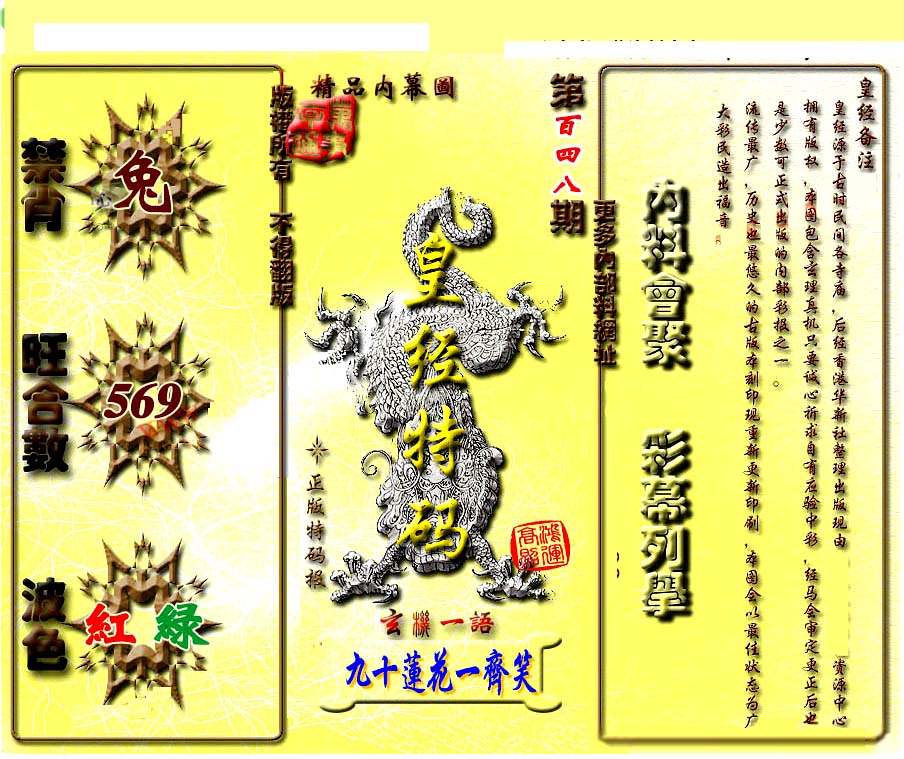 精品内幕圖
第百四八期
版權所有 不得翻版
更多内部料網址
皇经特码
正版特码报
玄機一語
九十蓮花一齊笑
鴻運高照
禁肖
兔
旺合數
569
波色
紅 綠
内料會聚 彩幕列舉
皇经备注
皇经源于古时民间各寺庙,后经香港华新社整理出版现由 資源中心
拥有版权,本图包含玄理真机只要诚心祈求自有应验中彩,经马会审定更正后也
是少数可正式出版的内部彩报之一。
流传最广,历史也最悠久的古版本刻印现重新更新印刷,本图会以最佳状态为广
大彩民造出福音。